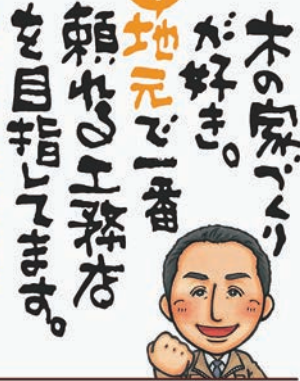 木の家づくり
が好き。
地元で一番
頼れる工務店
を目指してます。